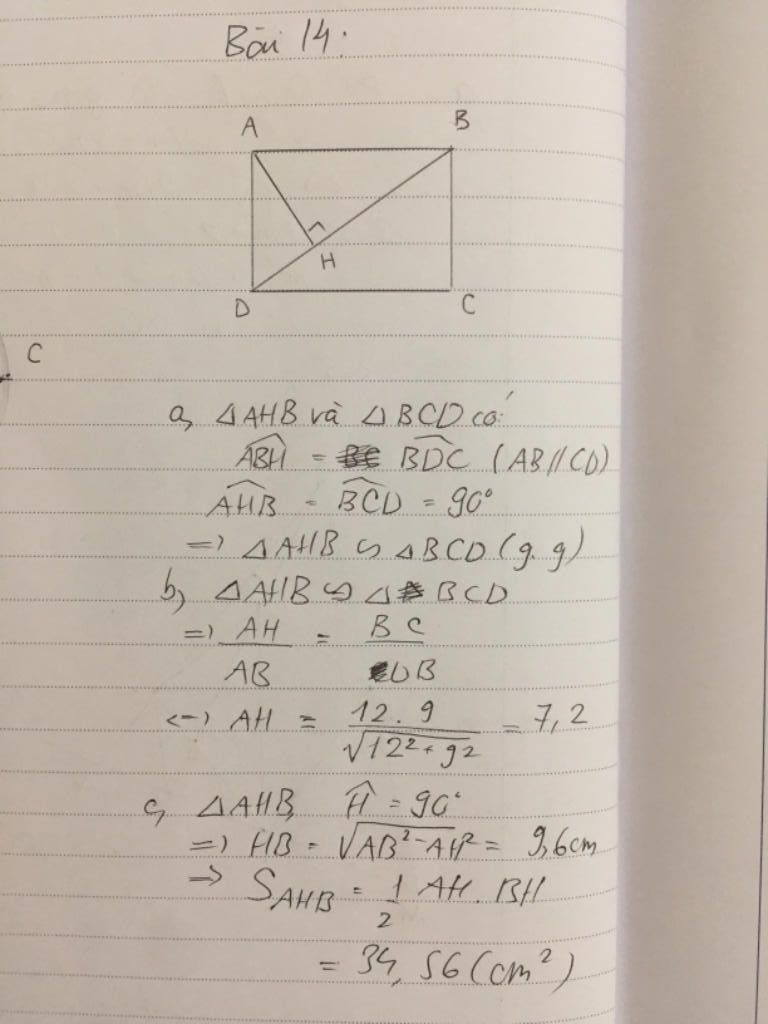 Bài 14:
A B
H
D C
C
a, △AHB và △BCD có:
ABH = BDC (AB//CD)
AHB = BCD = 90°
=> △AHB ∽ △BCD (g.g)
b, △AHB ∽ △ BCD
=> AH/AB = BC/DB
<-> AH = 12.9/√(12²+9²) = 7,2
c, △AHB, Ĥ = 90°
=> HB = √(AB²-AH²) = 9,6cm
=> S_AHB = 1/2 AH. BH
= 34,56 (cm²)